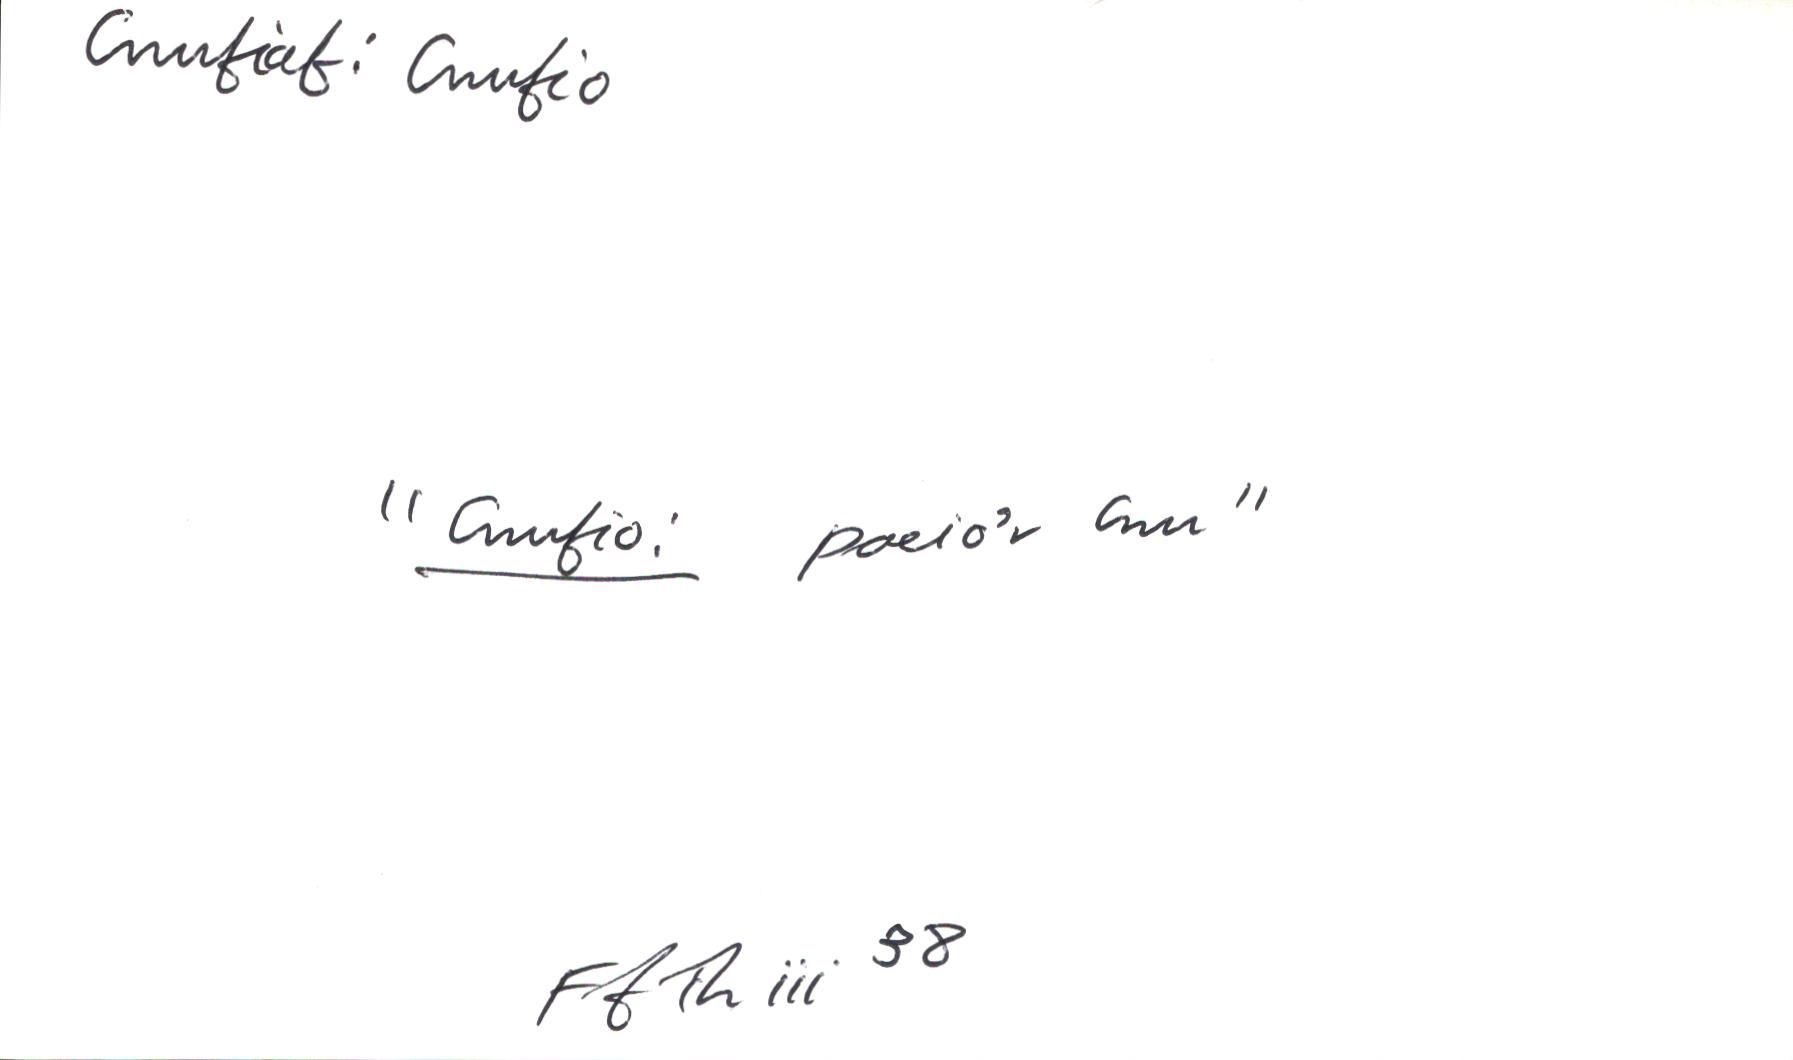 Cnufiaf: Cnufio
"Cnufio: pacio'r cnu"
Ff Th iii 38